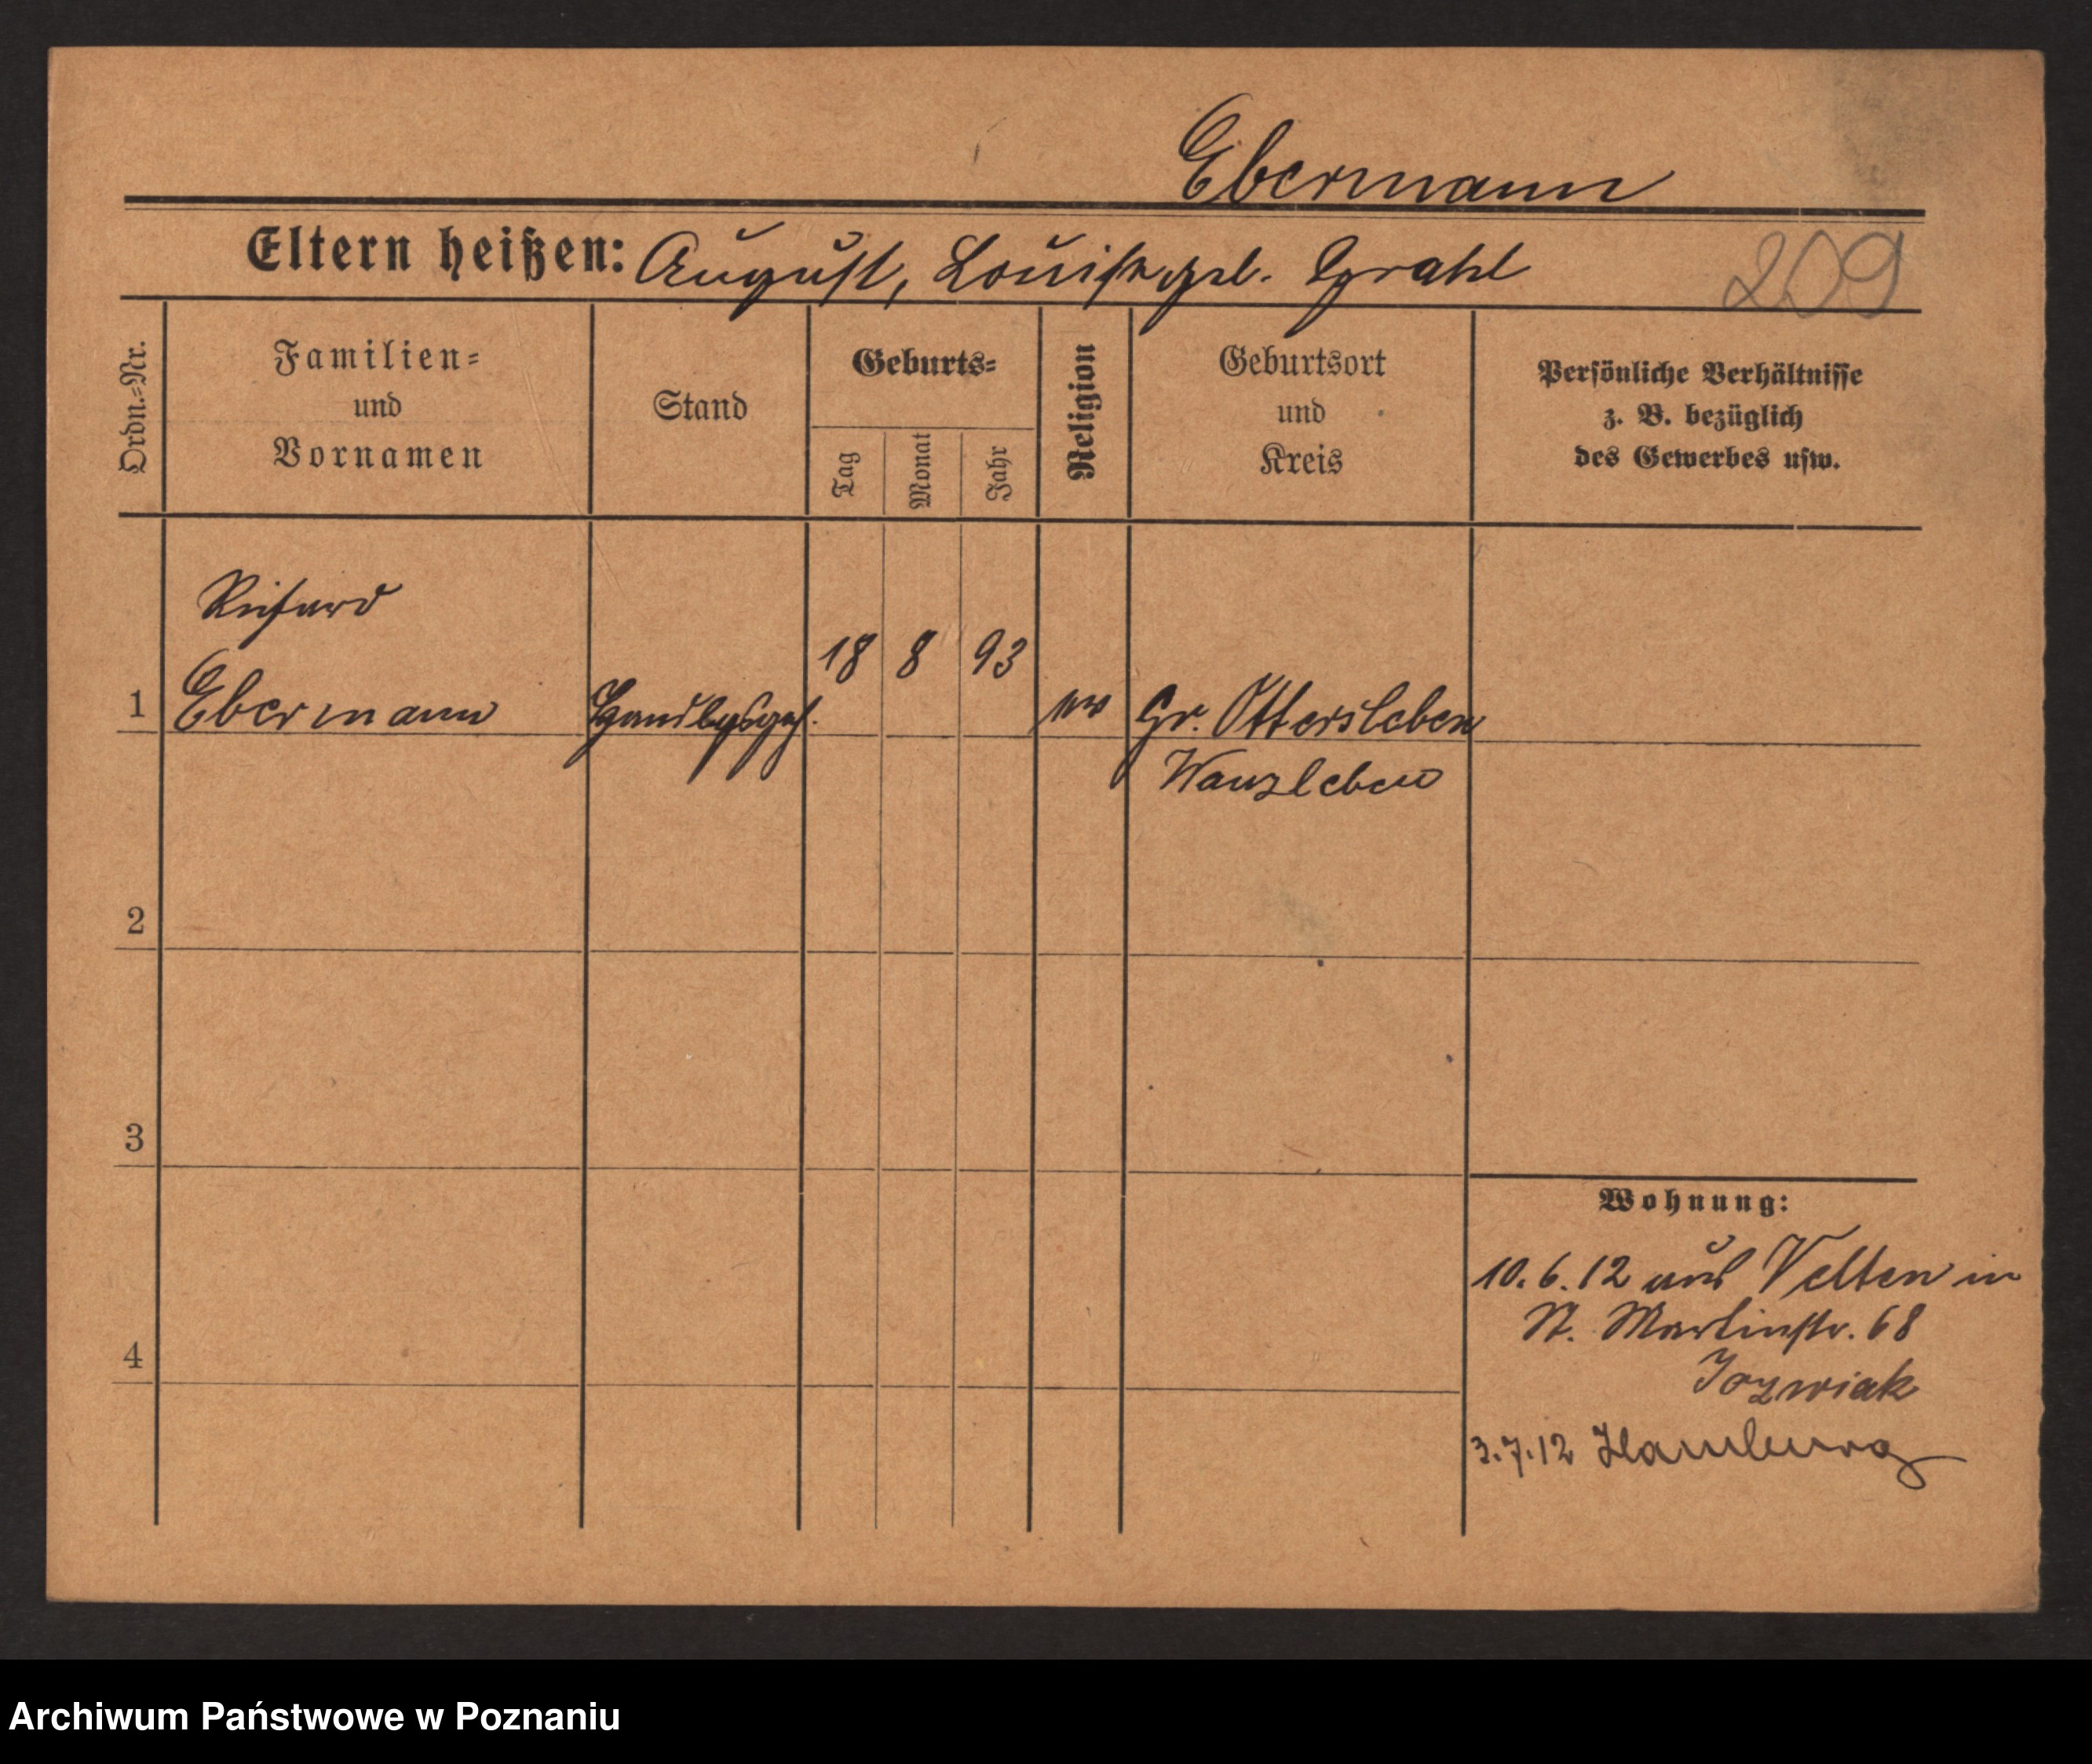 Ebermann
Eltern heißen: August, Louise geb. Grahl
209
Ordn.-Nr.
Familien-
und
Vornamen
Stand
Geburts-
Tag
Monat
Jahr
Religion
Geburtsort
und
Kreis
Persönliche Verhältnisse
z. B. bezüglich
des Gewerbes usw.
Richard
1 Ebermann Handlgsgeh. 18 8 93 ev Gr. Ottersleben
Wanzleben
2
3
4
Wohnung:
10.6.12 aus Velten in
St. Martinstr. 68
Jozwiak
3.7.12 Hamburg
Archiwum Państwowe w Poznaniu